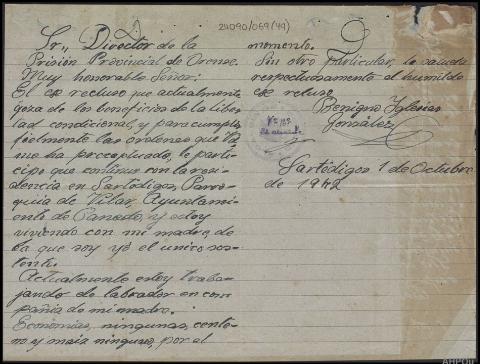 24090/069(49)
Sr., Director de la
Prisión Provincial de Orense.
Muy honorable Señor:
El ex recluso que actualmente
goza de los beneficios de la liber-
tad condicional, y para cumplir
fielmente las ordenes que Vd
me ha preceptuado, le parti-
cipo que continuo con la resi-
dencia en Sartédigos, Parro-
quia de Vilar, Ayuntami-
ento de Canedo, y estoy
viviendo con mi madre, de
la que soy yo el unico sos-
tente.
Actualmente estoy traba-
jando de labrador en com-
pañia de mi madre.
Economias, ningunas, cente-
no y maiz ninguno, por el
momento.
Sin otro particular, le saluda
respectuosamente el humilde
ex recluso
Benigno Iglesias
González
Sartédigos 1 de Octubre
de 1942
AHPOu